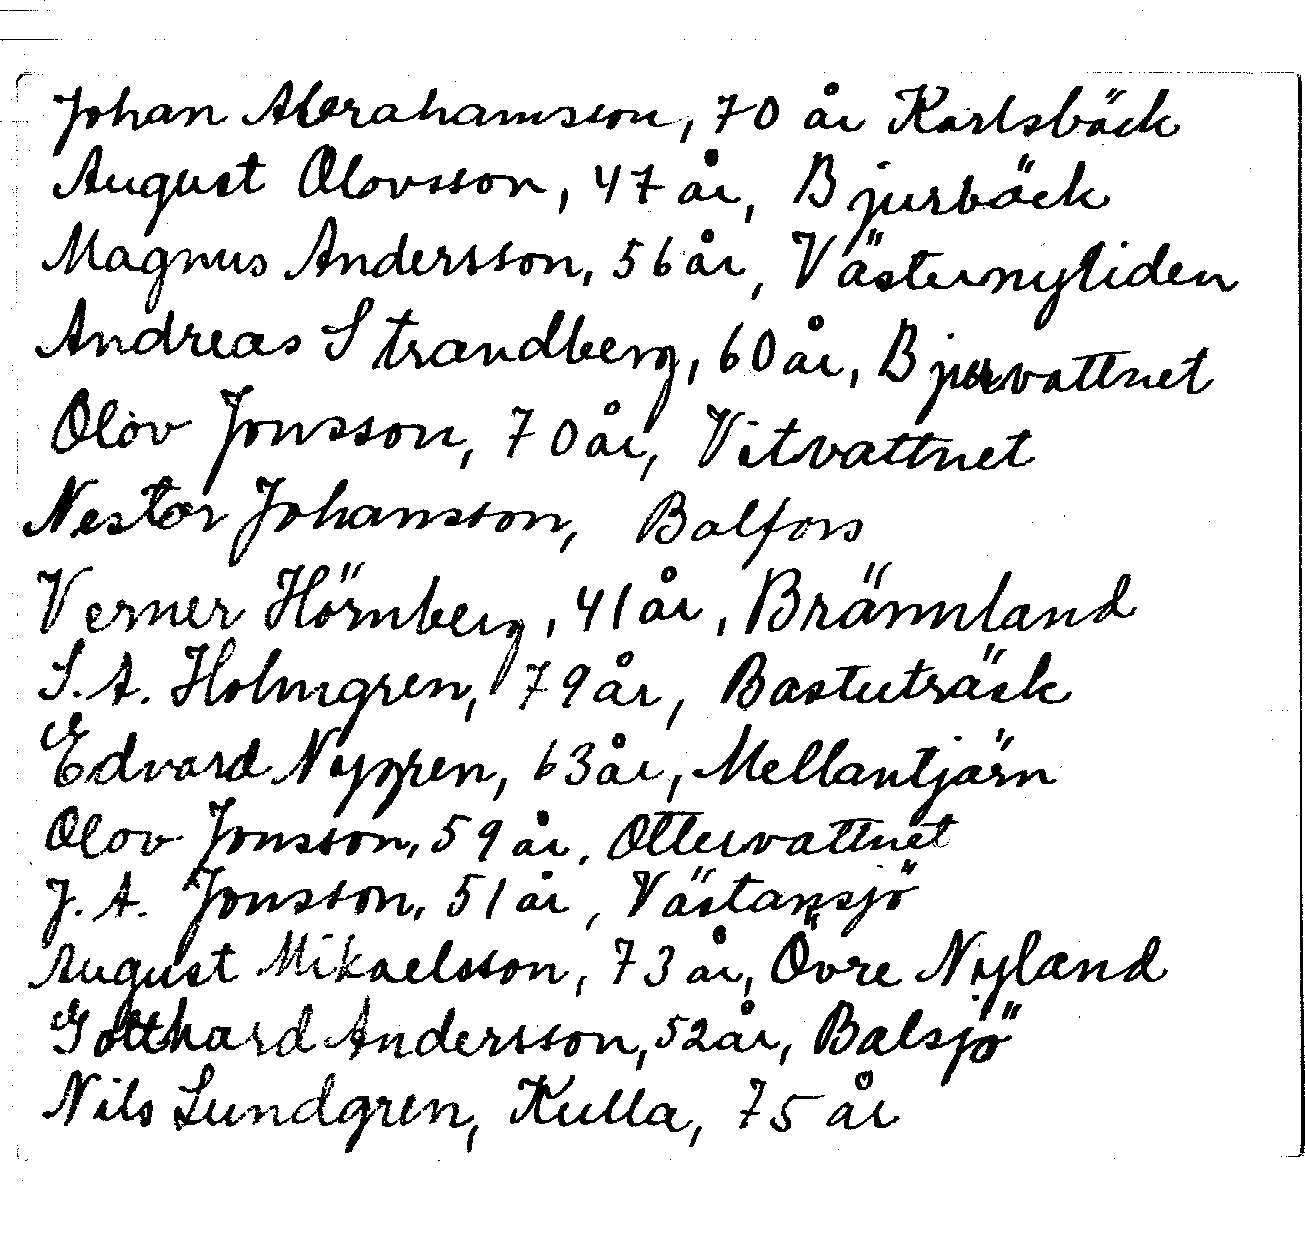 Johan Abrahamsson, 70 år Karlsbäck
August Olovsson, 47 år, Bjurbäck
Magnus Andersson, 56 år, Västernyliden
Andreas Strandberg, 60 år, Bjurvattnet
Olov Jonsson, 70 år, Vitvattnet
Nestor Johansson, Balfors
Verner Hörnberg, 41 år, Brännland
S. A. Holmgren, 79 år, Bastuträsk
Edvard Nygren, 63 år, Mellantjärn
Olov Jonsson, 59 år, Ottervattnet
J. A. Jonsson, 51 år, Västansjö
August Mikaelsson, 73 år, Övre Nyland
Gotthard Andersson, 52 år, Balsjö
Nils Lundgren, Kulla, 75 år